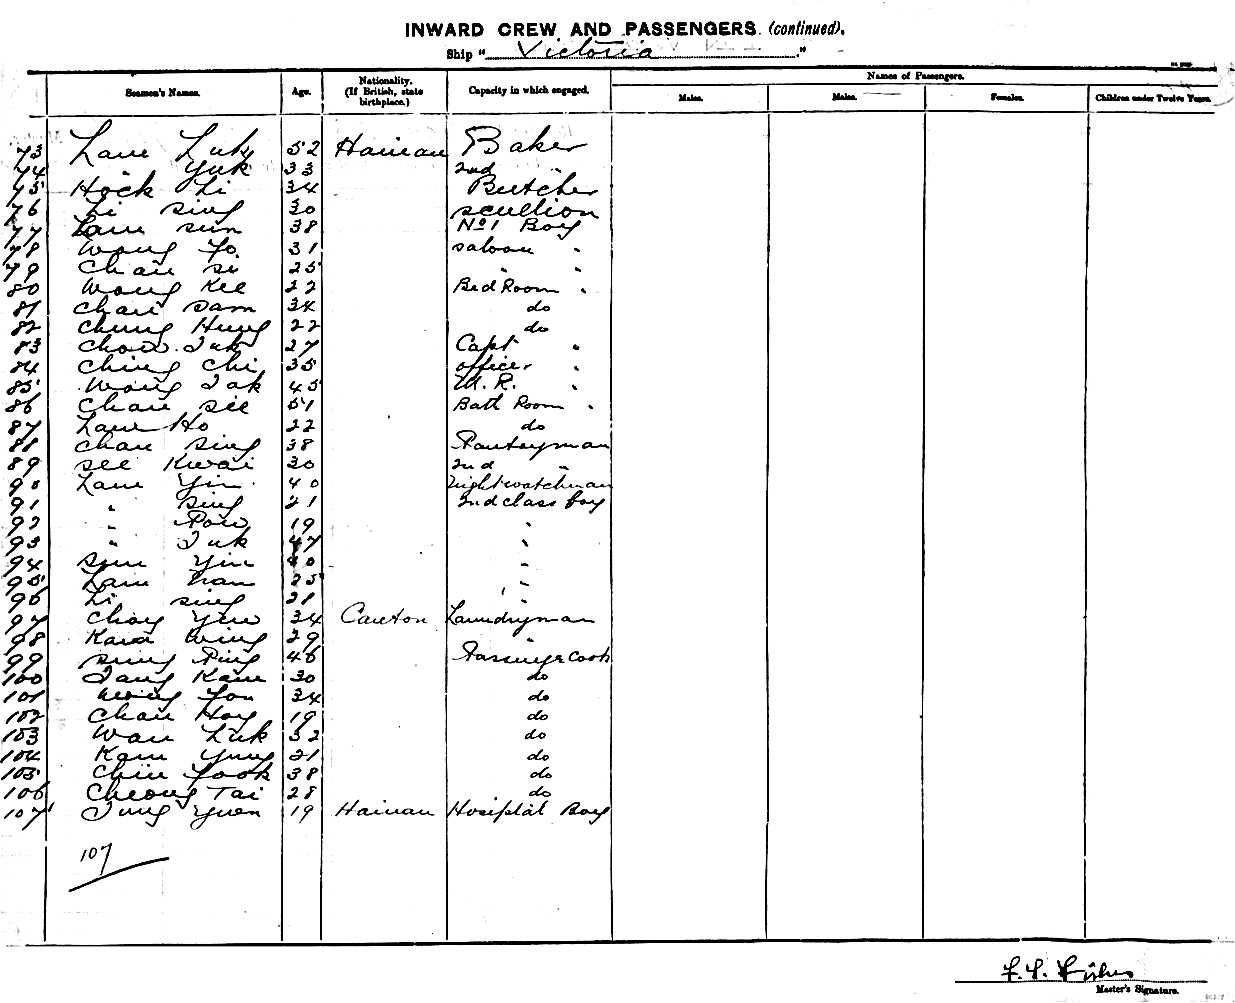 INWARD CREW AND PASSENGERS (continued).
Ship "Victoria"
Seamen's Names. Age. Nationality. (If British, state birthplace.) Capacity in which engaged. Names of Passengers.
Males. Males. Females. Children under Twelve Years.
73 Lam Luk 52 Hainan Baker
74 " Yuk 33 2nd "
75 Hock Li 34 Butcher
76 Li Sing 30 Scullion
77 Lam Sun 38 No 1 Boy
78 Wong Yo 31 Saloon "
79 Chan Si 25 " "
80 Wong Kee 22 Bed Room "
81 Chan Sam 34 do
82 Chung Hung 22 do
83 Chow Tuk 27 Capt "
84 Ching Chi 35 officer "
85 Wong Tak 45 M. R. "
86 Chan See 51 Bath Room "
87 Lam Ho 22 do
88 Chan Sing 38 Pantryman
89 See Kwai 30 2nd "
90 Lam Yin 40 Nightwatchman
91 " Sing 21 2nd class boy
92 " Pow 19 "
93 " Tuk 47 "
94 Sum Yin 40 "
95 Lam Nan 25 "
96 Li Sing 21 "
97 Choy Yew 34 Canton Laundryman
98 Kwa Wing 29 "
99 Sung Ping 46 Passenger Cook
100 Tang Kam 30 do
101 Wong Fon 34 do
102 Chan Hoy 19 do
103 Wan Luk 32 do
104 Kam Yung 21 do
105 Chin Fook 38 do
106 Cheong Tai 28 do
107 Tung Yuen 19 Hainan Hosiptal Boy
107
Master's Signature.